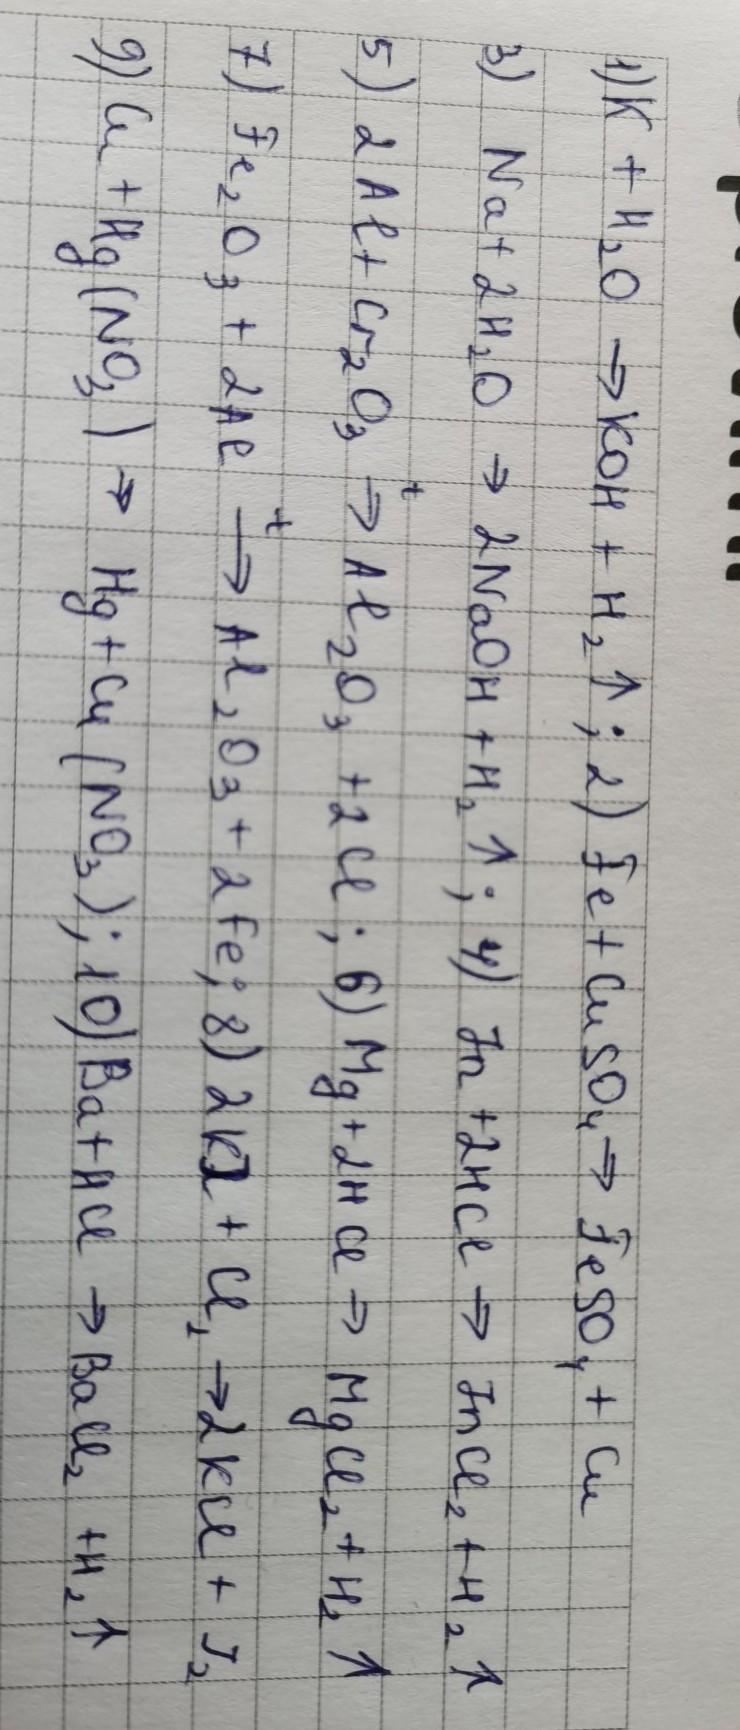 1) K + H₂O → KOH + H₂↑; 2) Fe + CuSO₄ → FeSO₄ + Cu
3) Na + 2H₂O → 2NaOH + H₂↑; 4) Zn + 2HCl → ZnCl₂ + H₂↑
5) 2Al + Cr₂O₃ →ᵗ Al₂O₃ + 2Cl; 6) Mg + 2HCl → MgCl₂ + H₂↑
7) Fe₂O₃ + 2Al →ᵗ Al₂O₃ + 2Fe; 8) 2KJ + Cl₂ → 2KCl + J₂
9) Cu + Hg(NO₃) → Hg + Cu(NO₃); 10) Ba + HCl → BaCl₂ + H₂↑